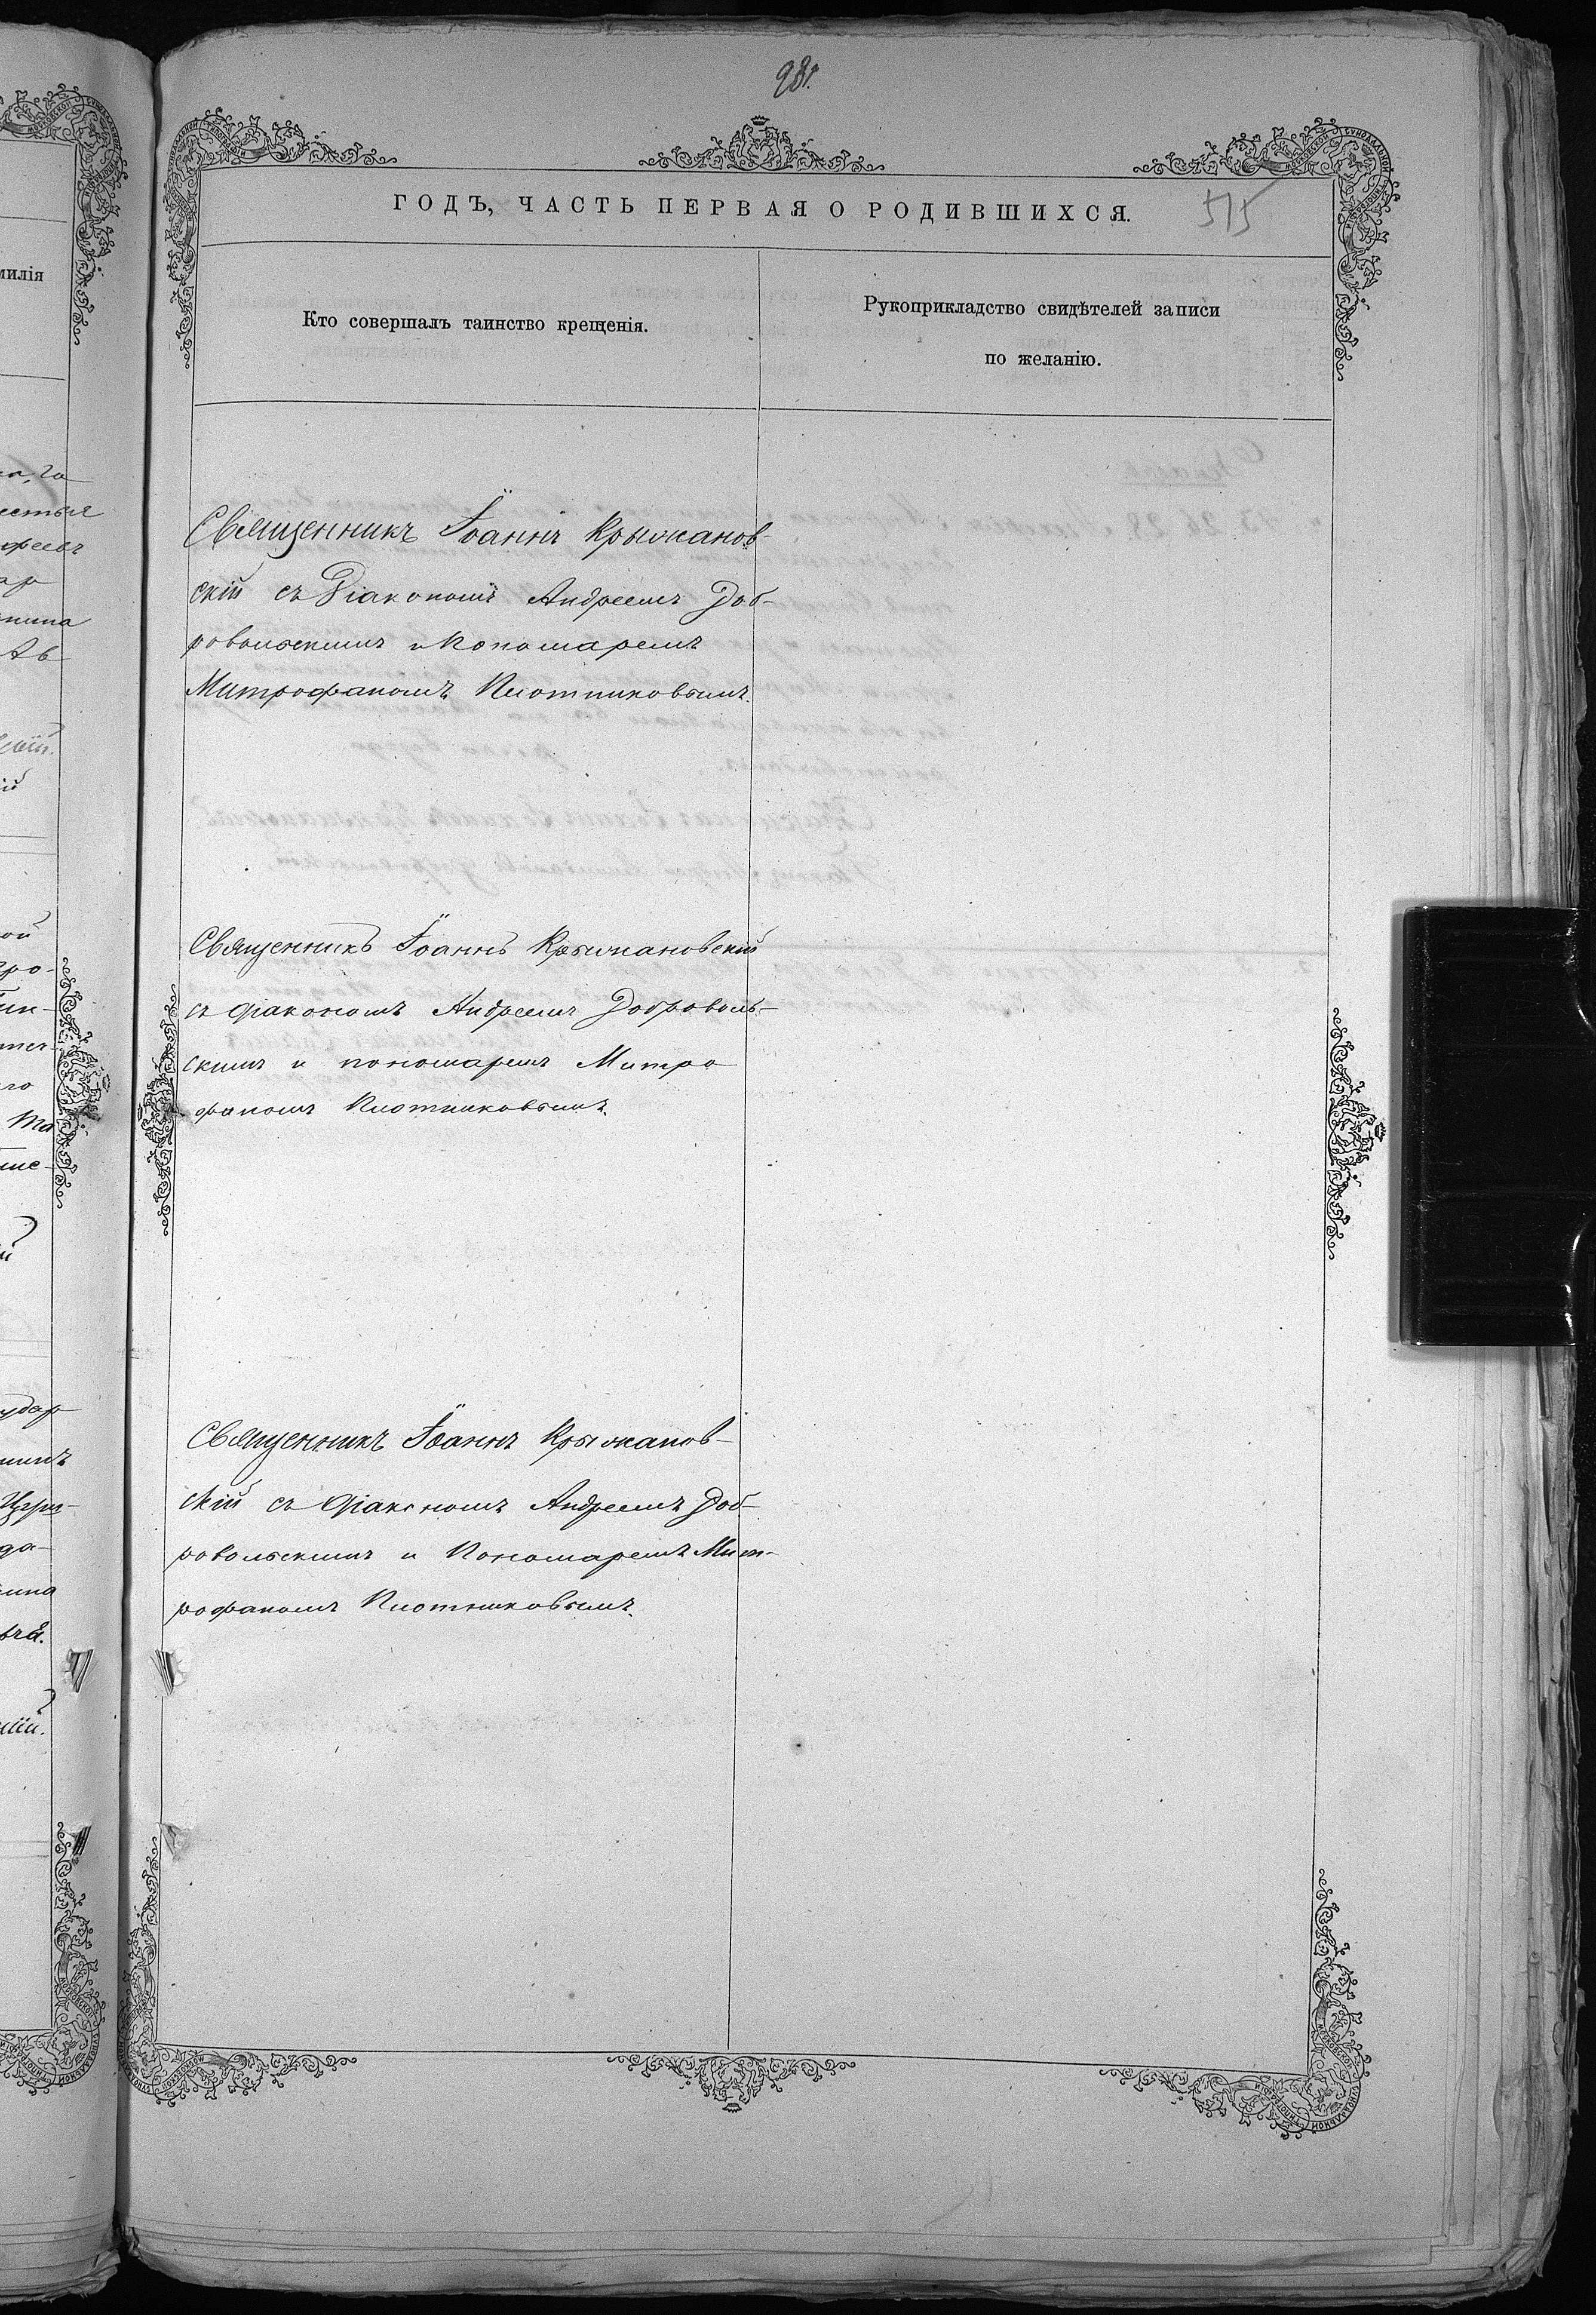 981.
ГОДЪ, ЧАСТЬ ПЕРВАЯ О РОДИВШИХСЯ.
515
милія
Кто совершалъ таинство крещенія.
Рукоприкладство свидѣтелей записи
по желанію.
Священникъ Іоаннъ Крыжанов-
скій съ Діакономъ Андреемъ Доб-
ровольскимъ и Пономаремъ
Митрофаномъ Плотниковымъ.
Священникъ Іоаннъ Крыжановскій
съ діакономъ Андреемъ Доброволь-
скимъ и пономаремъ Митро
фаномъ Плотниковымъ.
Священникъ Іоаннъ Крыжанов-
скій съ діакономъ Андреемъ Доб-
ровольскимъ и Пономаремъ Мит-
рофаномъ Плотниковымъ.